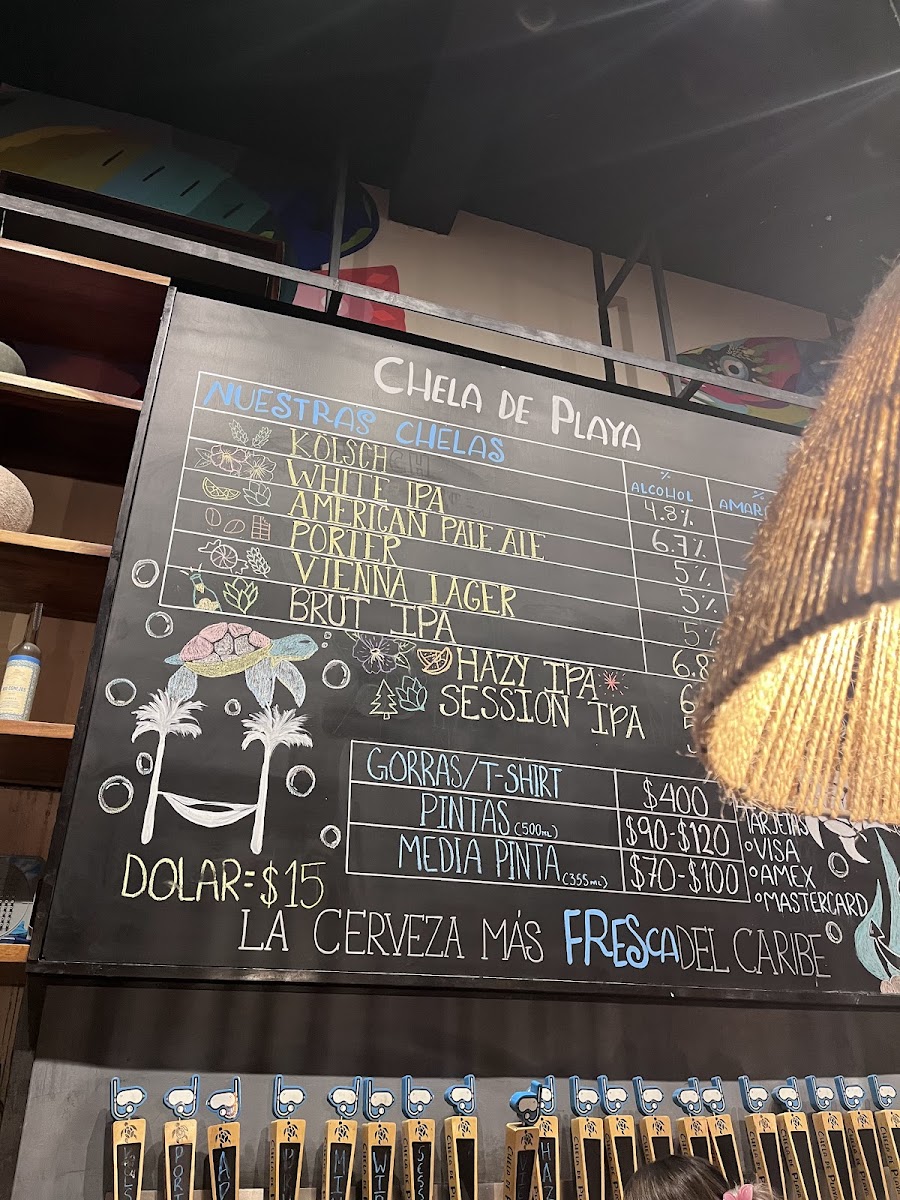 CHELA DE PLAYA
NUESTRAS CHELAS
% ALCOHOL
%
KÖLSCH 4.8%
WHITE IPA 6.7%
AMERICAN PALE ALE 5%
PORTER 5%
VIENNA LAGER 5%
BRUT IPA 6.8
HAZY IPA
SESSION IPA
GORRAS/T-SHIRT $400
PINTAS (500mL) $90-$120
MEDIA PINTA (355mL) $70-$100
TARJETAS
VISA
AMEX
MASTERCARD
DOLAR=$15
LA CERVEZA MÁS FRESCA DEL CARIBE